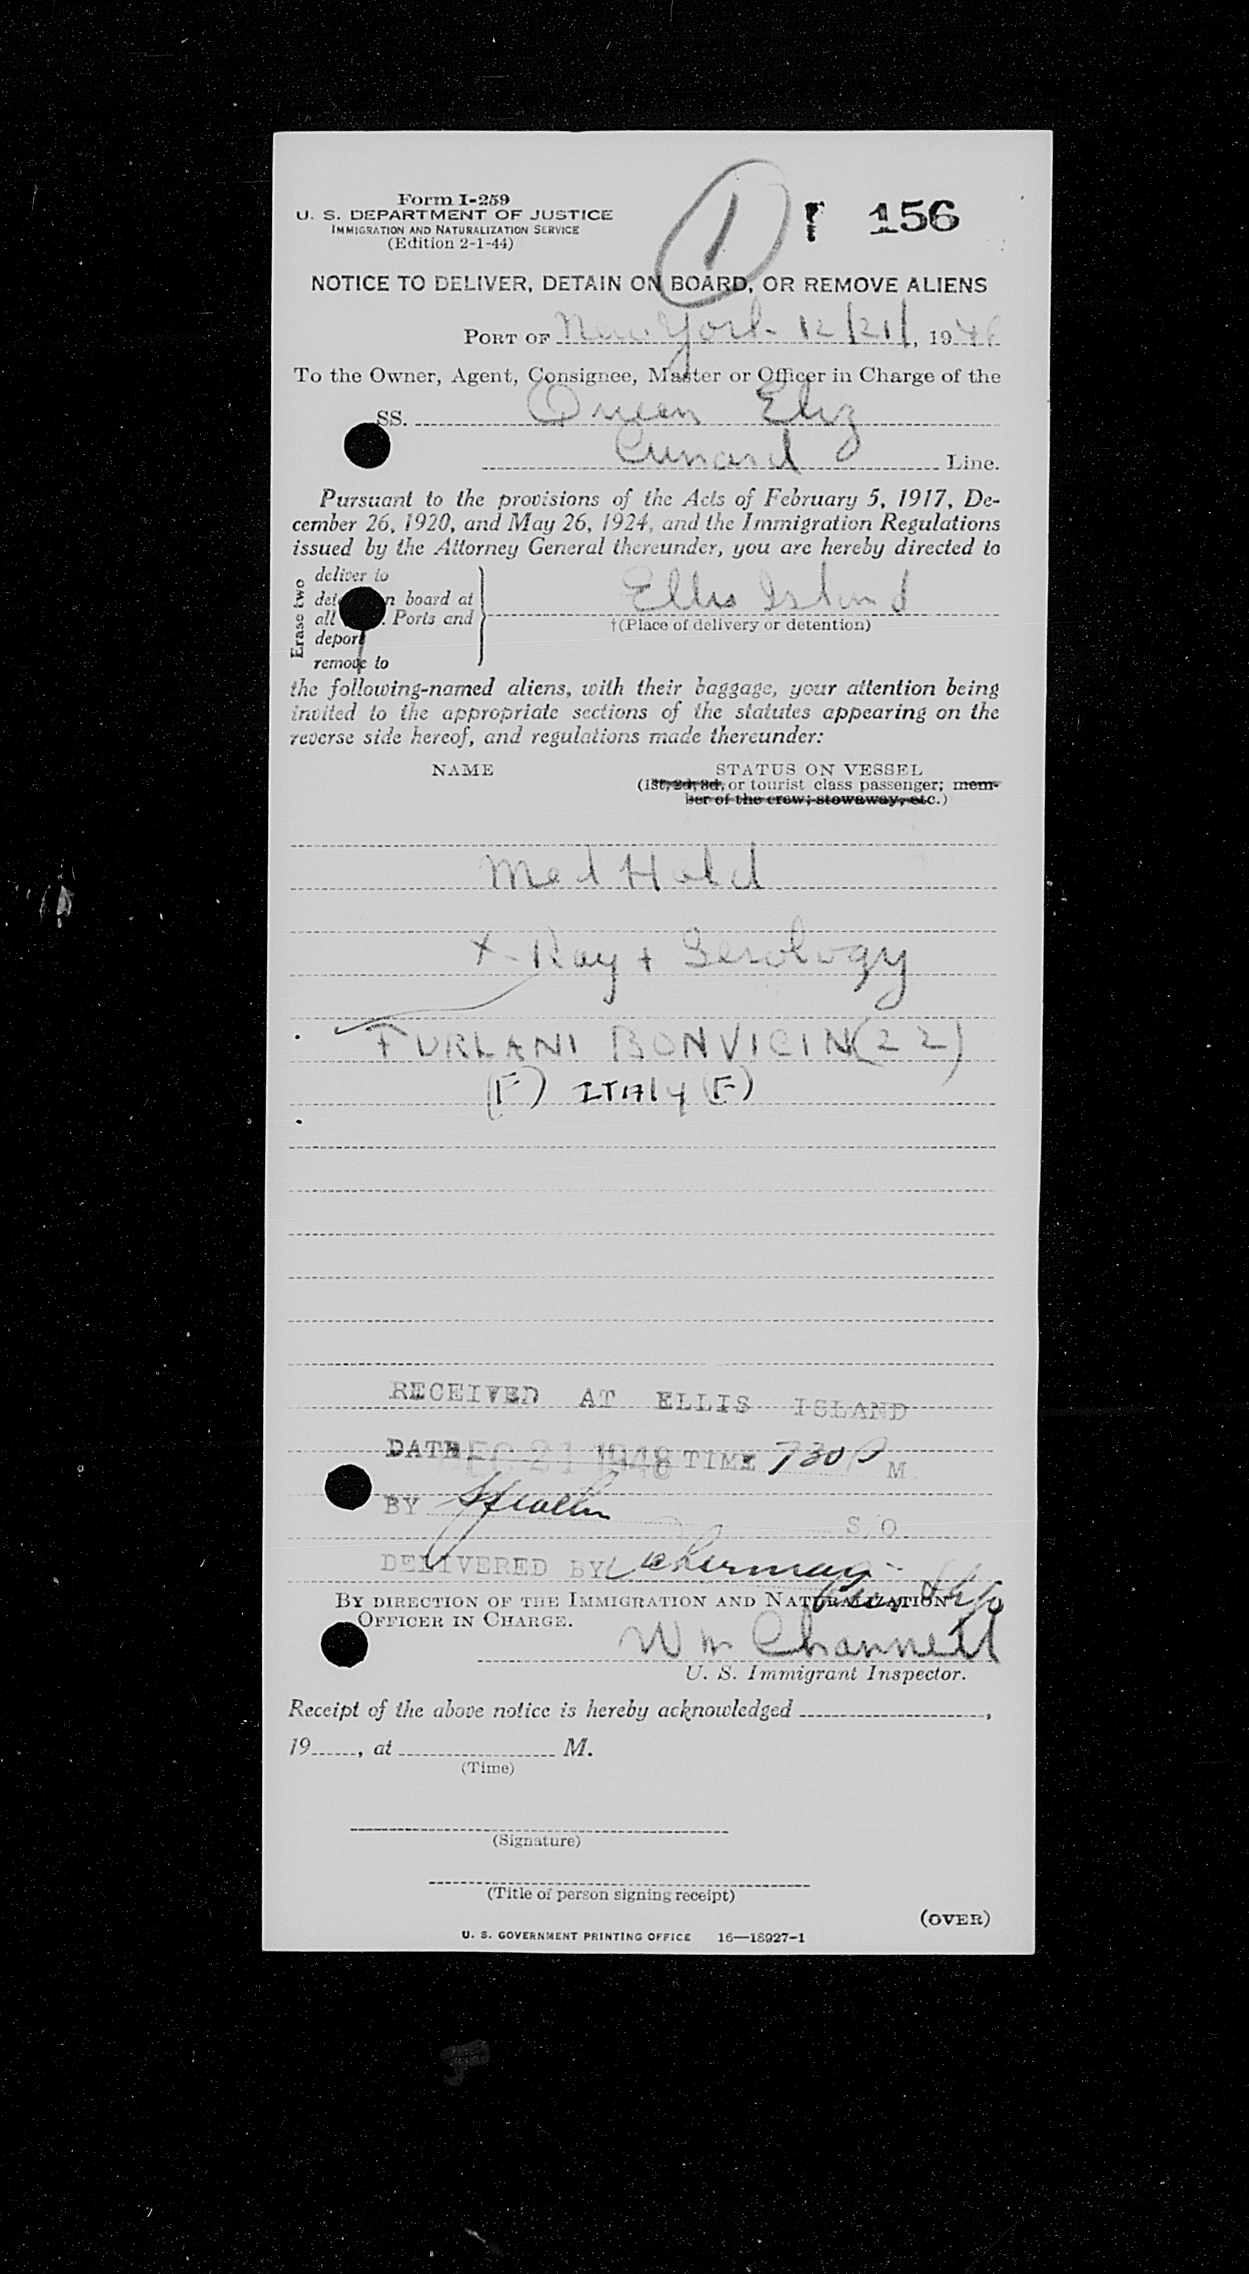 Form I-259
U. S. DEPARTMENT OF JUSTICE
IMMIGRATION AND NATURALIZATION SERVICE
(Edition 2-1-44)
1
156
NOTICE TO DELIVER, DETAIN ON BOARD, OR REMOVE ALIENS
PORT OF New York 12/21/, 1948
To the Owner, Agent, Consignee, Master or Officer in Charge of the
SS. Queen Eliz
Cunard Line.
Pursuant to the provisions of the Acts of February 5, 1917, De-
cember 26, 1920, and May 26, 1924, and the Immigration Regulations
issued by the Attorney General thereunder, you are hereby directed to
Erase two
deliver to
board at
all Ports and
deport
remove to
Ellis Island
†(Place of delivery or detention)
the following-named aliens, with their baggage, your attention being
invited to the appropriate sections of the statutes appearing on the
reverse side hereof, and regulations made thereunder:
NAME STATUS ON VESSEL
(1st, 2d, 3d, or tourist class passenger; mem-
ber of the crew; stowaway, etc.)
Med Hold
X-Ray + Serology
FURLANI BONVICIN (22)
(F) ITALY (F)
RECEIVED AT ELLIS ISLAND
DATE DEC 21 1948 TIME 730 P M
BY S/O
DELIVERED BY
BY DIRECTION OF THE IMMIGRATION AND NATURALIZATION
OFFICER IN CHARGE.
Wm Channell
U. S. Immigrant Inspector.
Receipt of the above notice is hereby acknowledged ,
19 , at M.
(Time)
(Signature)
(Title of person signing receipt)
(OVER)
U. S. GOVERNMENT PRINTING OFFICE 16—18927-1